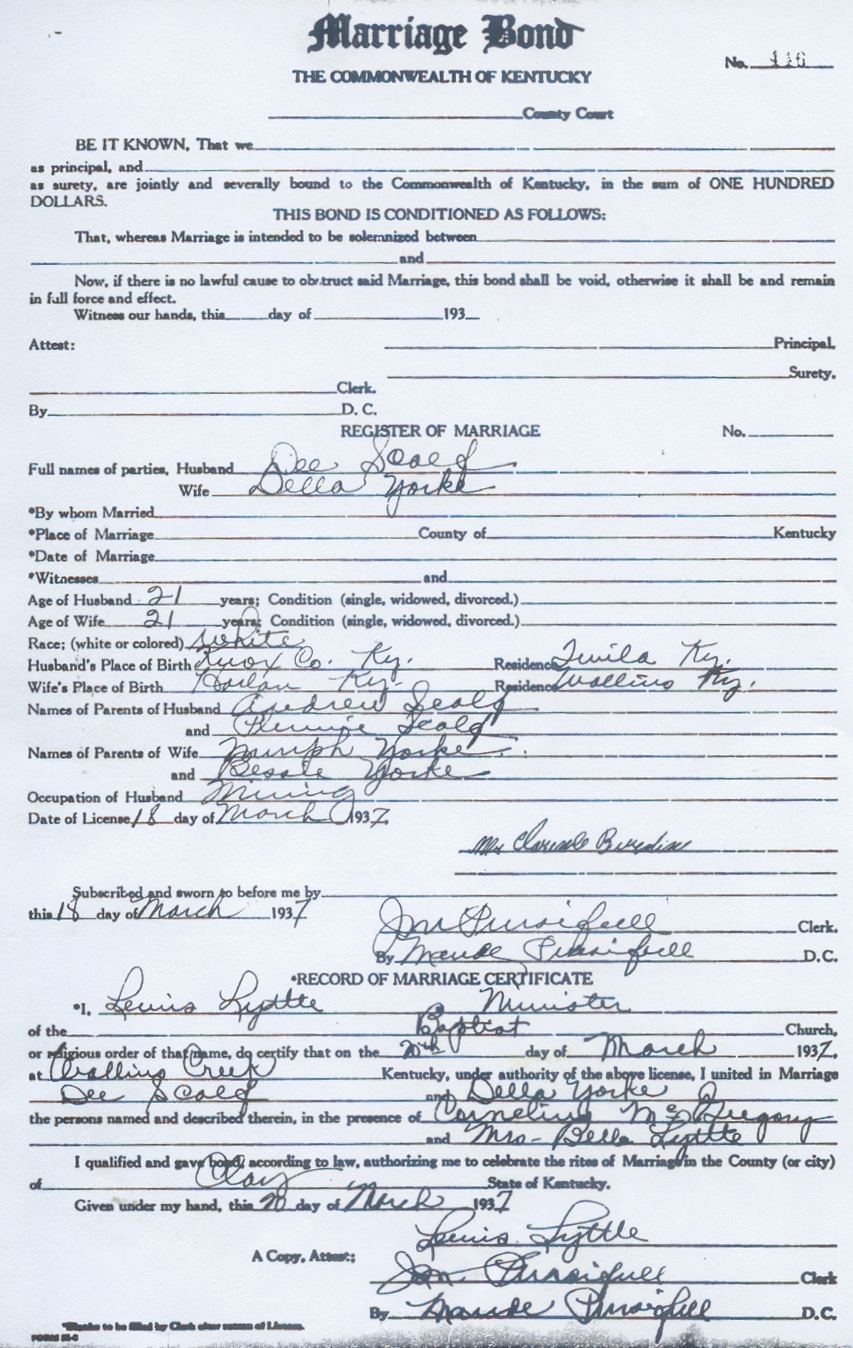 Marriage Bond
No. 416
THE COMMONWEALTH OF KENTUCKY
County Court
BE IT KNOWN, That we
as principal, and
as surety, are jointly and severally bound to the Commonwealth of Kentucky, in the sum of ONE HUNDRED
DOLLARS.
THIS BOND IS CONDITIONED AS FOLLOWS:
That, whereas Marriage is intended to be solemnized between
and
Now, if there is no lawful cause to obstruct said Marriage, this bond shall be void, otherwise it shall be and remain
in full force and effect.
Witness our hands, this day of 193
Attest: Principal.
Surety.
Clerk.
By D. C.
REGISTER OF MARRIAGE No.
Full names of parties, Husband Dee Scalf
Wife Della Yorke
*By whom Married
*Place of Marriage County of Kentucky
*Date of Marriage
*Witnesses and
Age of Husband 21 years; Condition (single, widowed, divorced.)
Age of Wife 21 years; Condition (single, widowed, divorced.)
Race; (white or colored) White
Husband's Place of Birth Knox Co. Ky. Residence Twila Ky.
Wife's Place of Birth Harlan Ky. Residence Wallins Ky.
Names of Parents of Husband Andrew Scalf
and Scalf
Names of Parents of Wife Yorke
and Bessie Yorke
Occupation of Husband Mining
Date of License 18 day of March 1937
Mrs Clarence
Subscribed and sworn to before me by
this 18 day of March 1937
Jon Pursifull Clerk.
By Maude Pursifull D.C.
*RECORD OF MARRIAGE CERTIFICATE
*I, Lewis Lyttle Minister
of the Baptist Church,
or religious order of that name, do certify that on the 20th day of March 1937,
at Wallins Creek Kentucky, under authority of the above license, I united in Marriage
Dee Scalf and Della Yorke
the persons named and described therein, in the presence of Cornelius McGregory
and Mrs- Bella Lyttle
I qualified and gave bond, according to law, authorizing me to celebrate the rites of Marriage in the County (or city)
of Clay State of Kentucky.
Given under my hand, this 20 day of March 1937
Lewis Lyttle
A Copy, Attest; Jon Pursifull Clerk
By Maude Pursifull D.C.
*Blanks to be filled by Clerk after return of License.